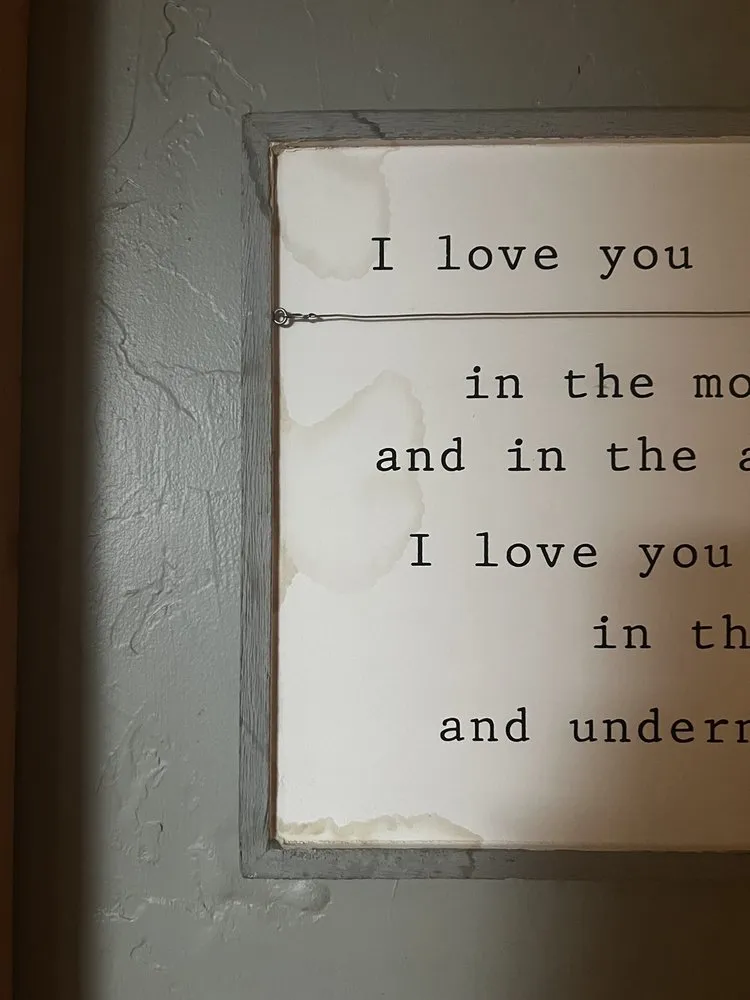 I love you
in the mo
and in the a
I love you
in th
and under